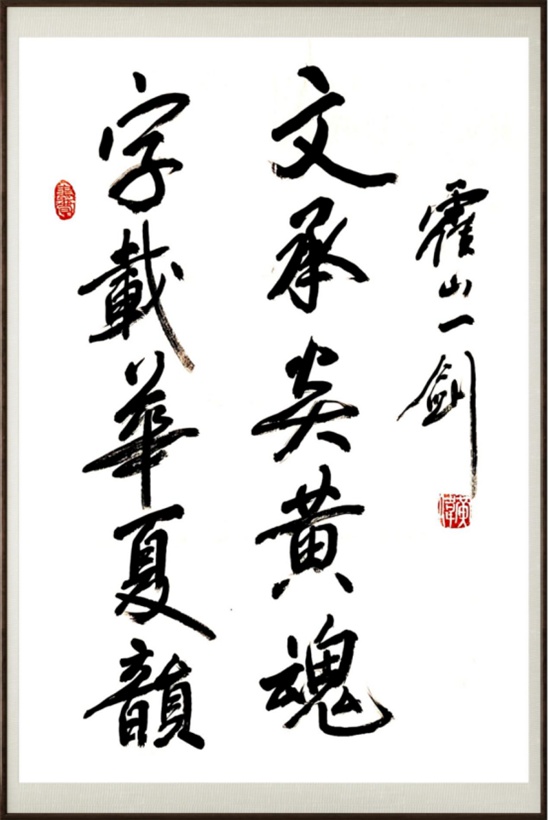 霍山一剑
文承炎黄魂
字載華夏韻